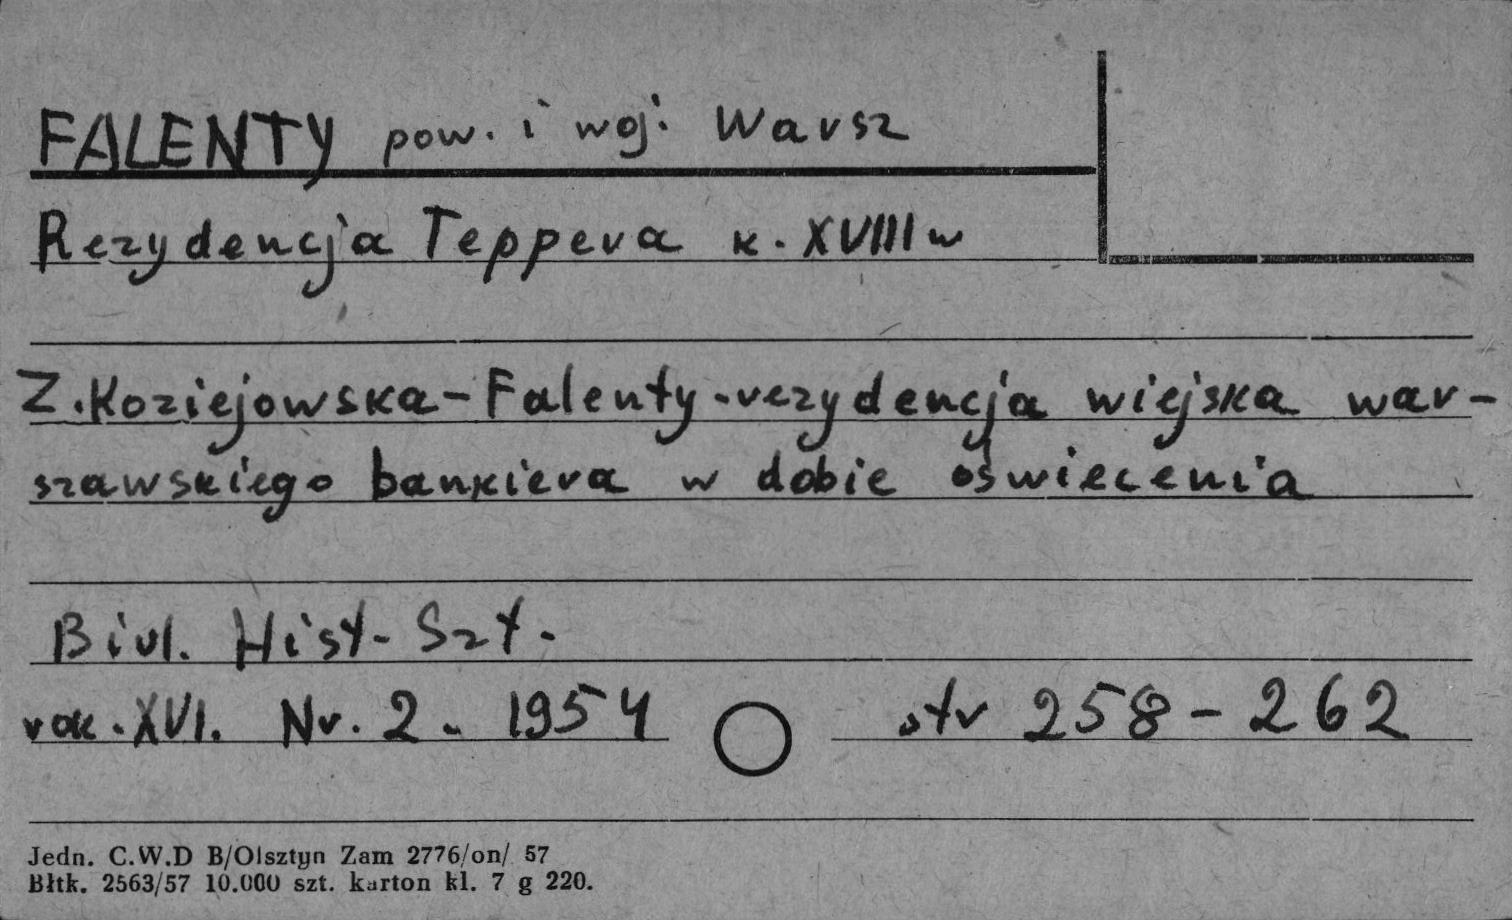 FALENTY pow. i woj. Warsz
Rezydencja Teppera k. XVIII w
Z. Koziejowska - Falenty - rezydencja wiejska war-
szawskiego bankiera w dobie oświecenia
Biul. Hist. Szt.
rok. XVI. Nr. 2 - 1954 str 258 - 262
Jedn. C.W.D B/Olsztyn Zam 2776/on/ 57
Błtk. 2563/57 10.000 szt. karton kl. 7 g 220.